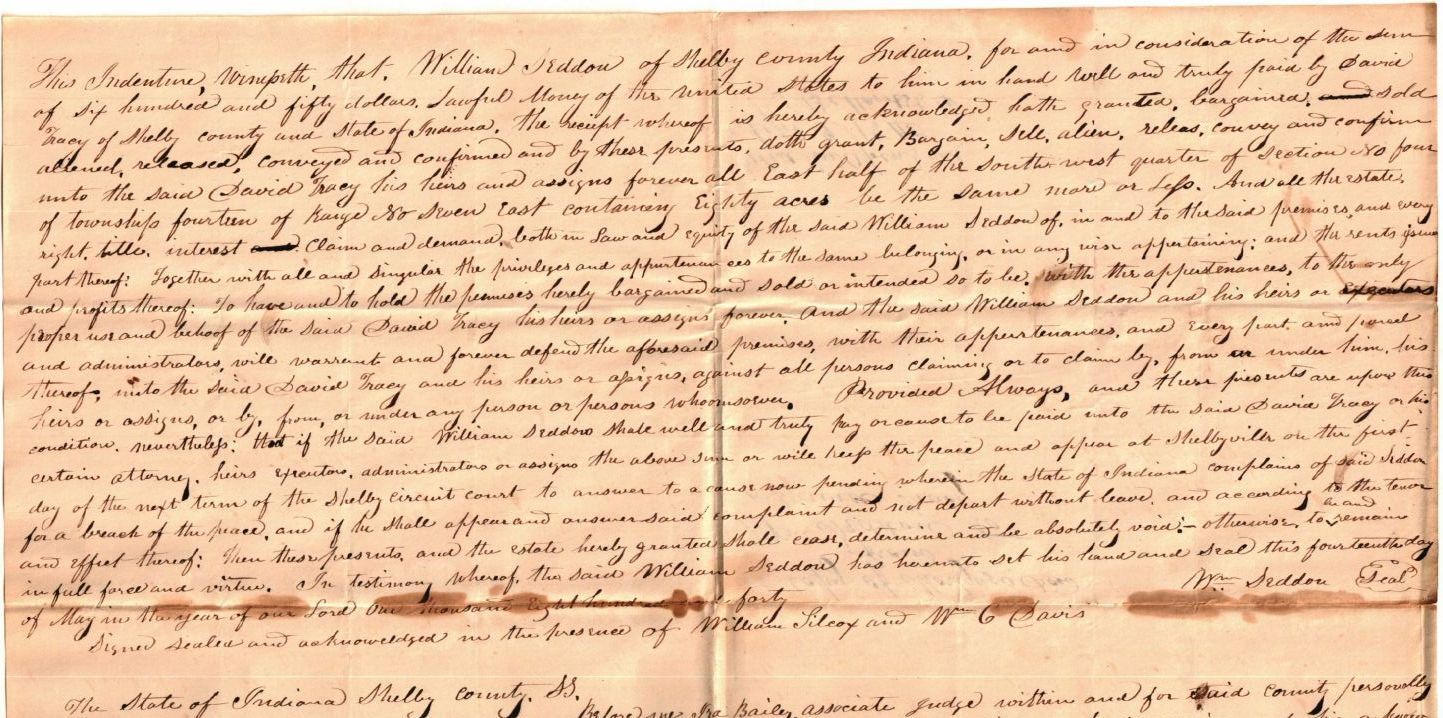 This Indenture, Witnesseth, that. William Seddon of Shelby county Indiana. for and in consideration of the sum
of Six hundred and fifty dollars. Lawful Money of the United States to him in hand well and truly paid by David
Tracy of Shelby county and State of Indiana. the receipt whereof is hereby acknowledged hath granted, bargained, and sold
aliened, released, conveyed and confirmed and by these presents, doth grant, Bargain, Sell, alien, releas, convey and confirm
unto the said David Tracy his heirs and assigns forever all East half of the South west quarter of Section No four
of township fourteen of Range No Seven East containing Eighty acres be the same more or Less. And all the estate.
right. title. interest and Claim and demand. both in Law and equity of the said William Seddon of, in and to the said premises, and every
part thereof: Together with all and Singular the privileges and appurtenances to the same belonging, or in any wise appertaining; and the rents issues
and profits thereof: To have and to hold the premises hereby bargained and sold or intended so to be. with the appurtenances, to the only
proper use and behoof of the said David Tracy his heirs or assigns forever. And the said William Seddon and his heirs or executors
and administrators, will warrant and forever defend the aforesaid premises, with their appurtenances, and Every part and parcel
thereof, unto the said David Tracy and his heirs or assigns, against all persons claiming or to claim by, from or under him, his
heirs or assigns, or by, from, or under any person or persons whomsoever. Provided Always, and these presents are upon this
condition. nevertheless: that if the said William Seddon shall well and truly pay or cause to be paid unto the said David Tracy or his
certain attorney, heirs Executors, administrators or assigns the above sum or will keep the peace and appear at Shelbyville on the first
day of the next term of the Shelby Circuit court to answer to a cause now pending wherein the State of Indiana complains of said Seddon
for a breach of the peace, and if he shall appear and answer said complaint and not depart without leave. and according to the tenor
and effect thereof: then these presents, and the estate hereby granted shall cease, determine and be absolutely void:- otherwise, to be and remain
in full force and virtue. In testimony whereof, the said William Seddon has hereunto set his hand and seal this fourteenth day
of May in the year of our Lord One thousand Eight hundred and forty Wm Seddon Seal
Signed sealed and acknowledged in the presence of William Silcox and Wm C Davis
The State of Indiana Shelby county. SS.
Before me Ira Bailey associate judge within and for said county personally